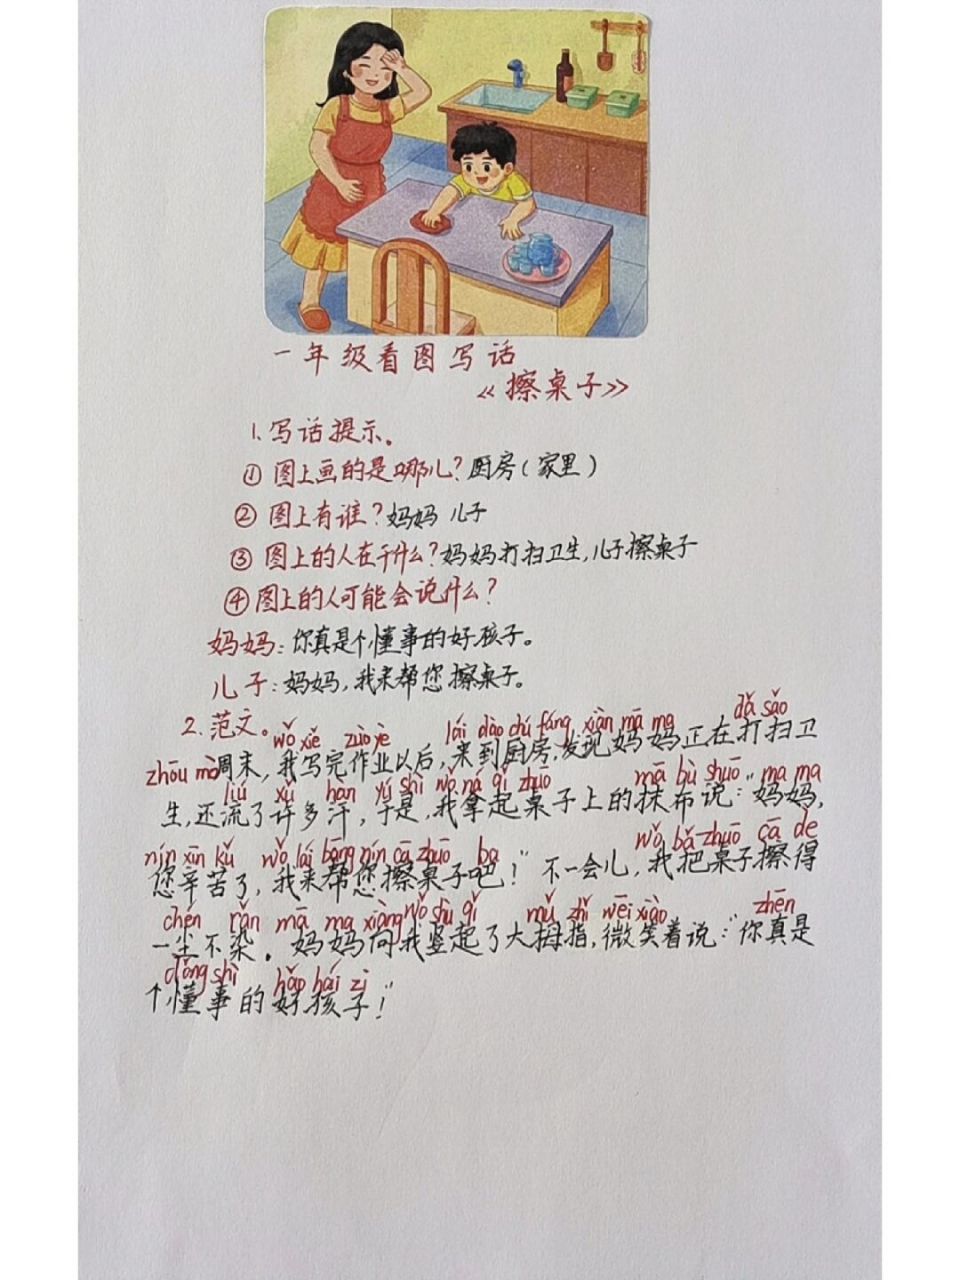 一年级看图写话
《擦桌子》
1.写话提示。
① 图上画的是哪儿？厨房（家里）
② 图上有谁？妈妈 儿子
③ 图上的人在干什么？妈妈打扫卫生，儿子擦桌子
④ 图上的人可能会说什么？
妈妈：你真是个懂事的好孩子。
儿子：妈妈，我来帮您擦桌子。
2.范文。
wǒ xiě zuò yè lái dào chú fáng xiàn mā ma dǎ sǎo
zhōu mò周末，我写完作业以后，来到厨房，发现妈妈正在打扫卫
liú xǔ han yú shì wǒ ná qǐ zhuo mā bù shuō ma ma
生，还流了许多汗，于是，我拿起桌子上的抹布说：“妈妈，
nín xīn kǔ wǒ lái bāng nín cā zhuō ba wǒ bǎ zhuō cā de
您辛苦了，我来帮您擦桌子吧！”不一会儿，我把桌子擦得
chén rǎn mā ma xiàng wǒ shù qǐ mǔ zhǐ wēi xiào zhēn
一尘不染。妈妈向我竖起了大拇指，微笑着说：“你真是
dǒng shì hǎo hái zi
个懂事的好孩子！”